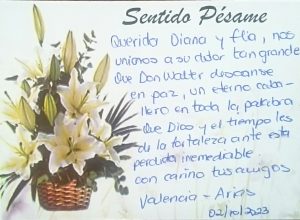 Sentido Pésame
Querida Diana y flia, nos
unimos a su dolor tan grande
Que Don Walter descanse
en paz, un eterno caba-
llero en toda la palabra
Que Dios y el tiempo les
de la fortaleza ante esta
perdida irremediable
con cariño tus amigos.
Valencia - Arias
02/ /2023